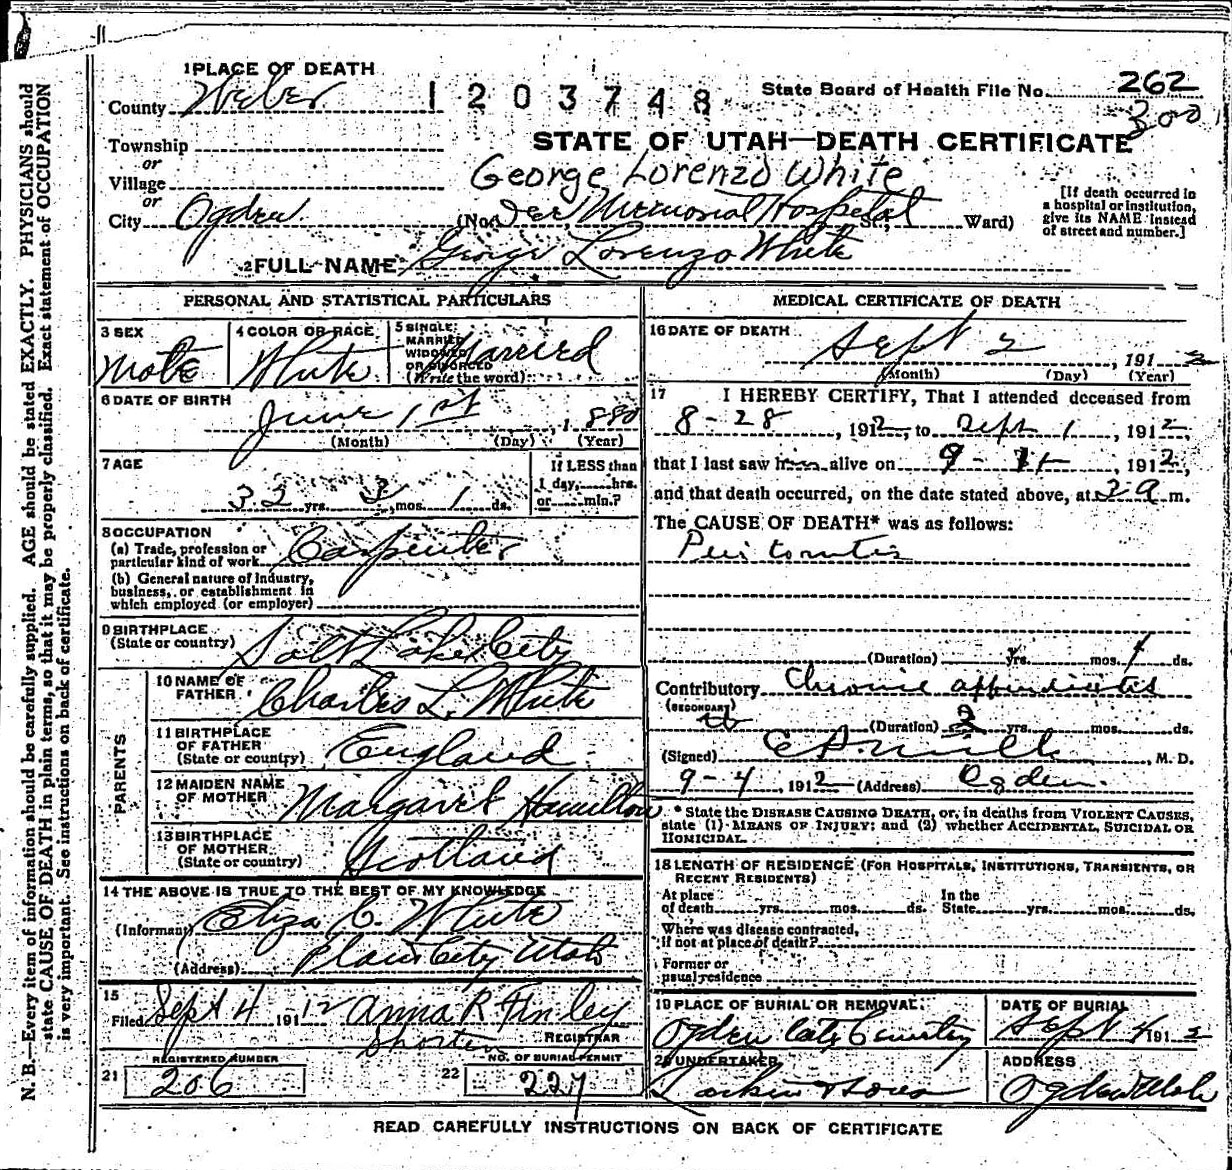 1 PLACE OF DEATH
County Weber
1203748
State Board of Health File No. 262
300
Township
or
Village
or
STATE OF UTAH—DEATH CERTIFICATE
George Lorenzo White
City Ogden (No. Dee Memorial Hospital St., Ward)
[If death occurred in a hospital or institution, give its NAME instead of street and number.]
2 FULL NAME George Lorenzo White
PERSONAL AND STATISTICAL PARTICULARS
3 SEX Male
4 COLOR OR RACE White
5 SINGLE, MARRIED, WIDOWED OR DIVORCED (Write the word) Married
6 DATE OF BIRTH June 1st, 1880
(Month) (Day) (Year)
7 AGE
If LESS than 1 day, hrs. or min.?
yrs. 3 mos. 1 ds.
8 OCCUPATION
(a) Trade, profession or particular kind of work Carpenter
(b) General nature of Industry, business, or establishment in which employed (or employer)
9 BIRTHPLACE (State or country) Salt Lake City
PARENTS
10 NAME OF FATHER Charles L. White
11 BIRTHPLACE OF FATHER (State or country) England
12 MAIDEN NAME OF MOTHER Margaret Hamilton
13 BIRTHPLACE OF MOTHER (State or country) Scotland
14 THE ABOVE IS TRUE TO THE BEST OF MY KNOWLEDGE
(Informant) Eliza C. White
(Address) Plain City Utah
15
Filed Sept 4 1912 Anna R Finley
Shorten REGISTRAR
REGISTERED NUMBER
21 206
NO. OF BURIAL PERMIT
22 227
MEDICAL CERTIFICATE OF DEATH
16 DATE OF DEATH
Sept 2, 1912
(Month) (Day) (Year)
17 I HEREBY CERTIFY, That I attended deceased from
8-28, 1912, to Sept 1, 1912,
that I last saw him alive on 9-1, 1912,
and that death occurred, on the date stated above, at 2 a m.
The CAUSE OF DEATH* was as follows:
Peritonitis
(Duration) yrs. mos. ds.
Contributory Chronic appendicitis
(SECONDARY)
(Duration) 2 yrs. mos. ds.
(Signed) M. D.
9-4, 1912 (Address) Ogden.
* State the DISEASE CAUSING DEATH, or, in deaths from VIOLENT CAUSES, state (1) MEANS OF INJURY; and (2) whether ACCIDENTAL, SUICIDAL OR HOMICIDAL.
18 LENGTH OF RESIDENCE (FOR HOSPITALS, INSTITUTIONS, TRANSIENTS, OR RECENT RESIDENTS)
At place of death yrs. mos. ds. In the State yrs. mos. ds.
Where was disease contracted, if not at place of death?
Former or usual residence
19 PLACE OF BURIAL OR REMOVAL
Ogden City Cemetery
DATE OF BURIAL
Sept 4 1912
20 UNDERTAKER
Larkin & Sons
ADDRESS
Ogden Utah
READ CAREFULLY INSTRUCTIONS ON BACK OF CERTIFICATE
N. B.—Every item of information should be carefully supplied. AGE should be stated EXACTLY. PHYSICIANS should
state CAUSE OF DEATH in plain terms, so that it may be properly classified. Exact statement of OCCUPATION
is very important. See instructions on back of certificate.